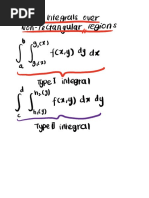 Integrals over
Non-rectangular regions
∫ₐᵇ ∫_{g₁(x)}^{g₂(x)} f(x,y) dy dx
Type I integral
∫_c^d ∫_{h₁(y)}^{h₂(y)} f(x,y) dx dy
Type II integral